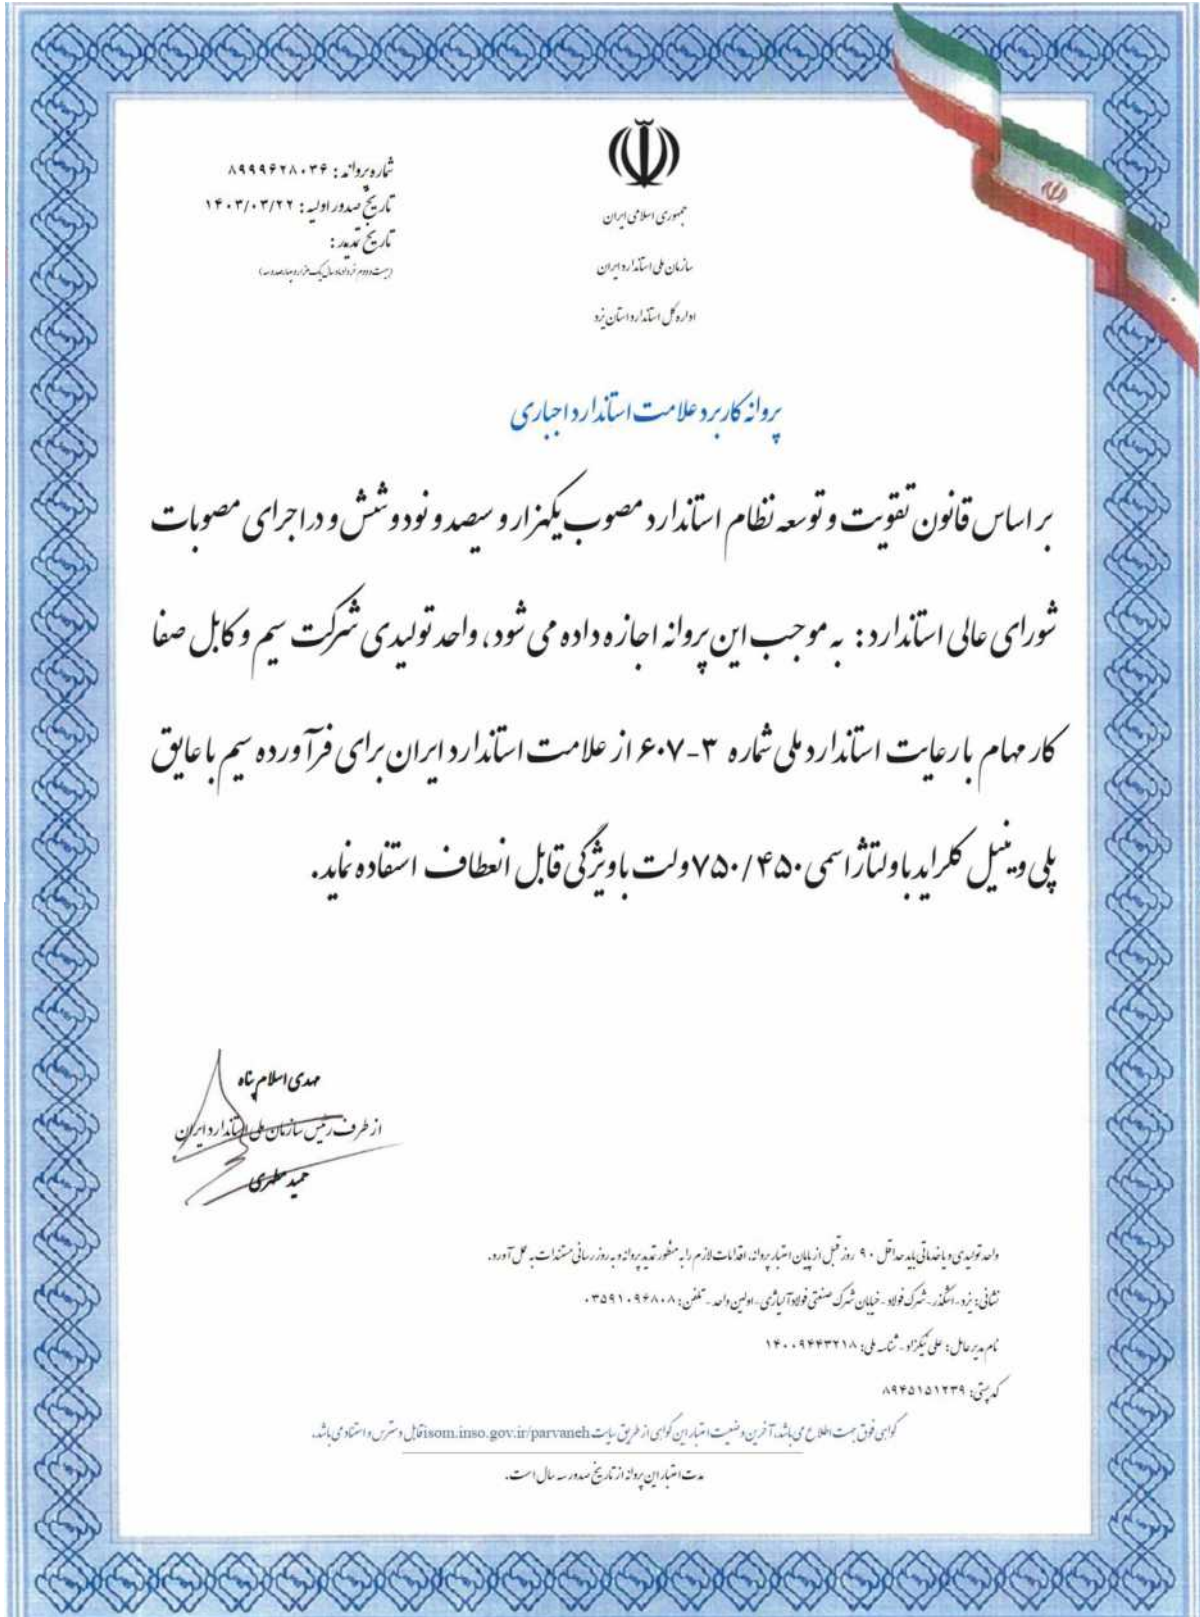 جمهوری اسلامی ایران
سازمان ملی استاندارد ایران
اداره کل استاندارد استان یزد
شماره پروانه : ۸۹۹۹۶۲۸۰۳۶
تاریخ صدور اولیه : ۱۴۰۳/۰۳/۲۲
تاریخ تمدید :
(بیست و دوم خرداد ماه سال یک هزار و چهارصد و سه)
پروانه کاربرد علامت استاندارد اجباری
بر اساس قانون تقویت و توسعه نظام استاندارد مصوب یکهزار و سیصد و نود و شش و در اجرای مصوبات
شورای عالی استاندارد : به موجب این پروانه اجازه داده می شود، واحد تولیدی شرکت سیم و کابل صفا
کار مهام با رعایت استاندارد ملی شماره ۳-۶۰۷ از علامت استاندارد ایران برای فرآورده سیم با عایق
پلی وینیل کلراید با ولتاژ اسمی ۷۵۰/۴۵۰ ولت با ویژگی قابل انعطاف استفاده نماید.
مهدی اسلام پناه
از طرف رئیس سازمان ملی استاندارد ایران
حمید مطهری
واحد تولیدی و یا خدماتی باید حداقل ۹۰ روز قبل از پایان اعتبار پروانه، اقدامات لازم را به منظور تمدید پروانه و به روز رسانی مستندات به عمل آورد.
نشانی: یزد - اشکذر - شهرک فولاد - خیابان شهرک صنعتی فولاد آلیاژی - اولین واحد - تلفن: ۰۳۵۹۱۰۹۶۸۰۸
نام مدیر عامل: علی نیکزاد - شناسه ملی: ۱۴۰۰۹۴۴۳۲۱۸
کد پستی: ۸۹۴۵۱۵۱۲۳۹
گواهی فوق جهت اطلاع می باشد، آخرین وضعیت اعتبار این گواهی از طریق سایت isom.inso.gov.ir/parvaneh قابل دسترس و استناد می باشد.
مدت اعتبار این پروانه از تاریخ صدور سه سال است.